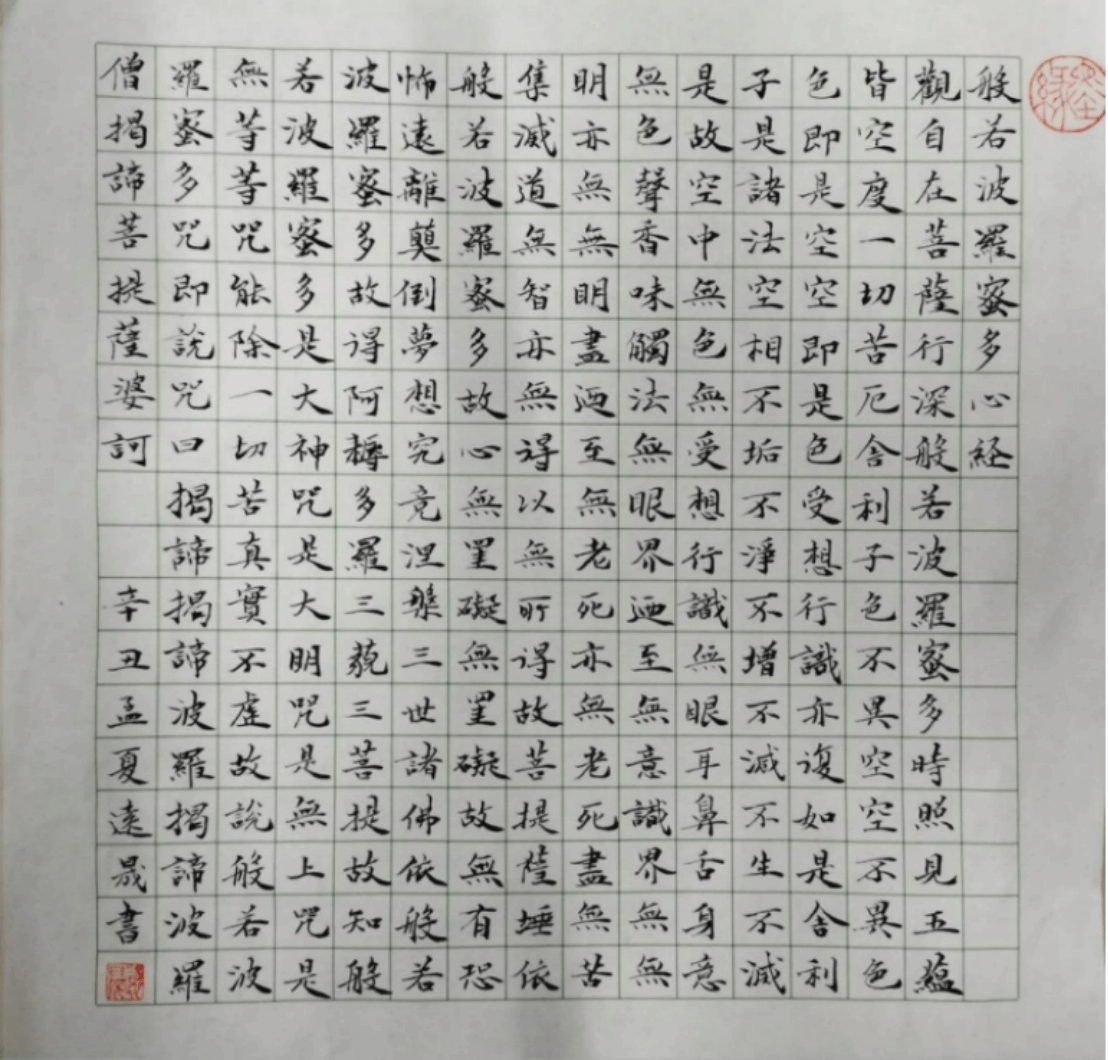 般若波羅蜜多心経
觀自在菩薩行深般若波羅蜜多時照見五蘊
皆空度一切苦厄舍利子色不異空空不異色
色即是空空即是色受想行識亦復如是舍利
子是諸法空相不垢不淨不增不減不生不滅
是故空中無色無受想行識無眼耳鼻舌身意
無色聲香味觸法無眼界廼至無意識界無無
明亦無無明盡廼至無老死亦無老死盡無苦
集滅道無智亦無得以無所得故菩提薩埵依
般若波羅蜜多故心無罣礙無罣礙故無有恐
怖遠離顛倒夢想究竟涅槃三世諸佛依般若
波羅蜜多故得阿耨多羅三藐三菩提故知般
若波羅蜜多是大神咒是大明咒是無上咒是
無等等咒能除一切苦真實不虛故說般若波
羅蜜多咒即說咒曰揭諦揭諦波羅揭諦波羅
僧揭諦菩提薩婆訶 辛丑孟夏遠晟書